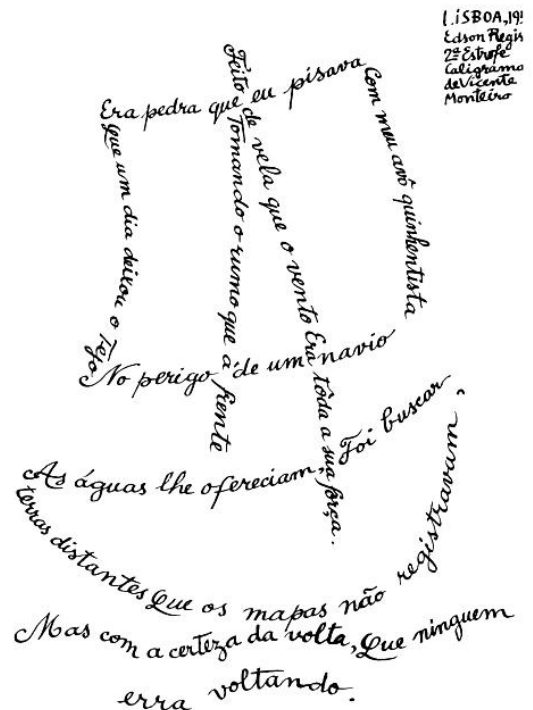 LISBOA, 19
Edson Regis
2ª Estrofe
Caligrama
de Vicente
Monteiro
Era pedra que eu pisava
Com meu avô quinhentista
Que um dia deixou o Tejo
No perigo de um navio
Feito de vela que o vento Era tôda a sua fôrça.
Tomando o rumo que à frente
As águas lhe ofereciam, Foi buscar,
terras distantes Que os mapas não registravam
Mas com a certeza da volta, Que ninguem
erra voltando.